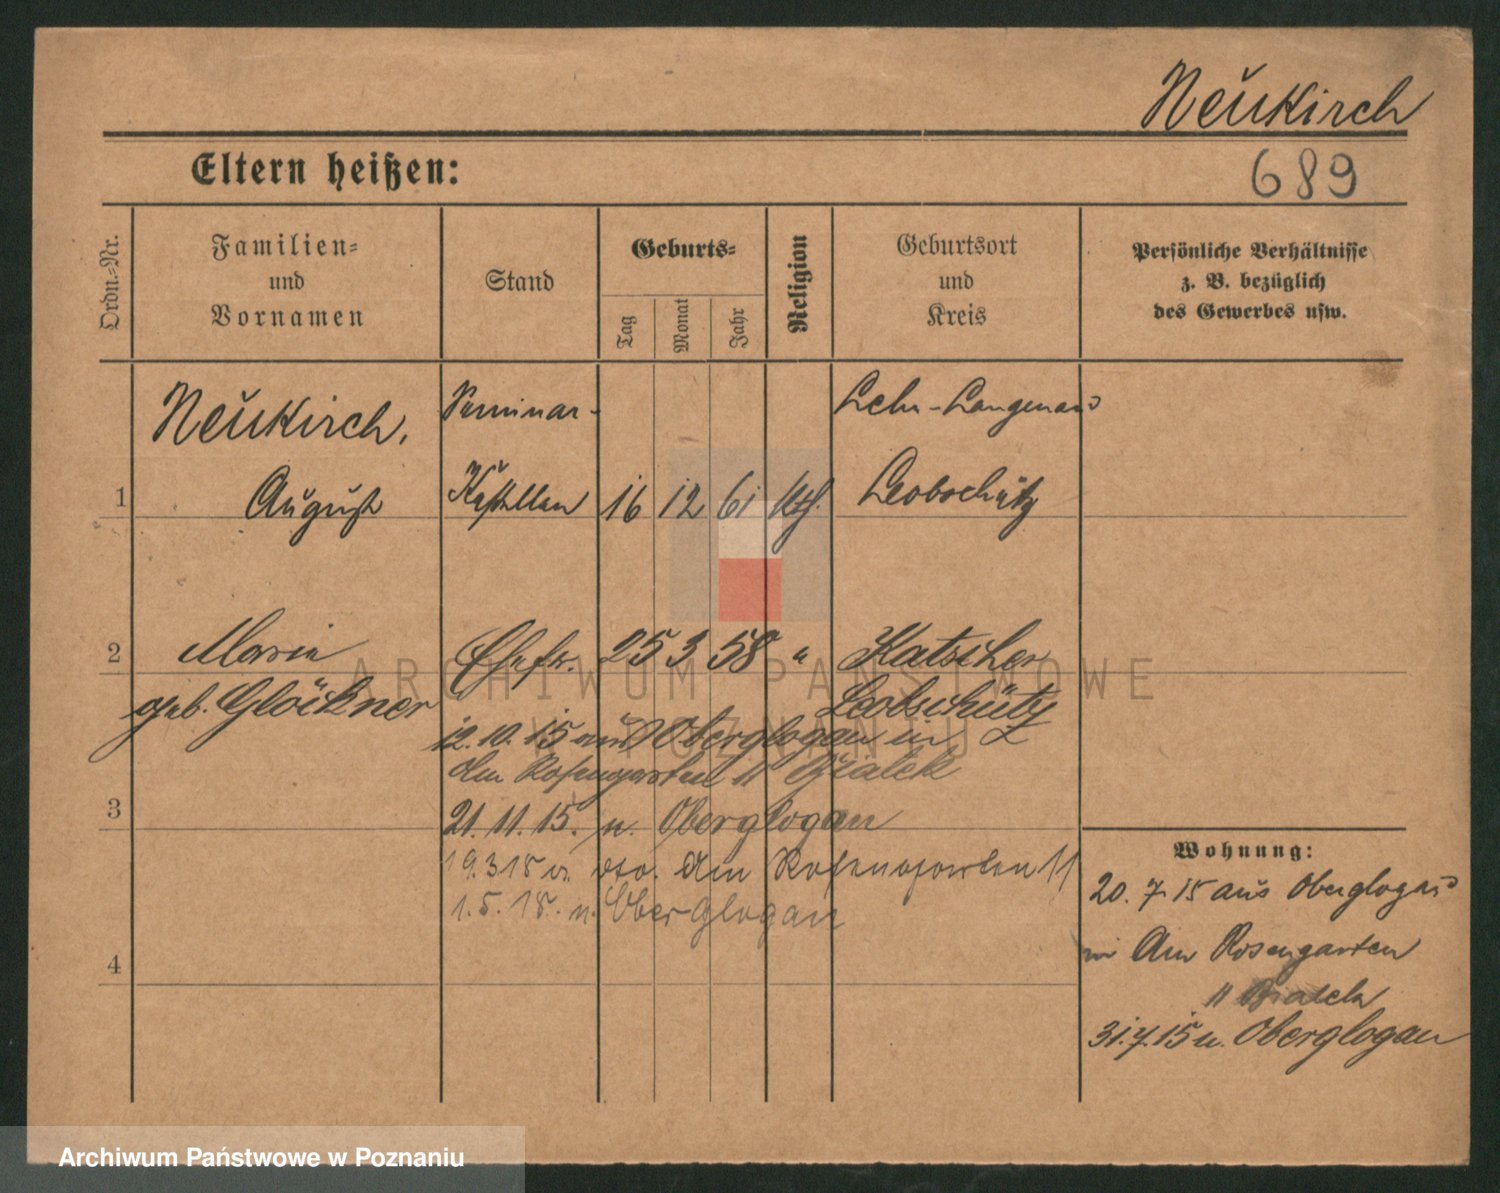 Neukirch
Eltern heißen:
689
Ordn.-Nr.
Familien-
und
Vornamen
Stand
Geburts-
Tag
Monat
Jahr
Religion
Geburtsort
und
Kreis
Persönliche Verhältnisse
z. B. bezüglich
des Gewerbes usw.
Neukirch,
Seminar-
Lehn-Langenau
1
August
Kastellan
16
12
61
kth.
Leobschütz
2
Maria
Ehefr.
25
3
58
"
Katscher
geb. Glöckner
Leobschütz
12.10.15 aus Oberglogau in
Am Rosengarten 11 Bialek
3
21.11.15. n. Oberglogau
19.3 18 v. dto. Am Rosengarten 11
1.5.18. n. Ober Glogau
4
Wohnung:
20.7.15 aus Oberglogau
in Am Rosengarten
11 Bialek
31.7.15 n. Oberglogau
ARCHIWUM PAŃSTWOWE
W POZNANIU
Archiwum Państwowe w Poznaniu